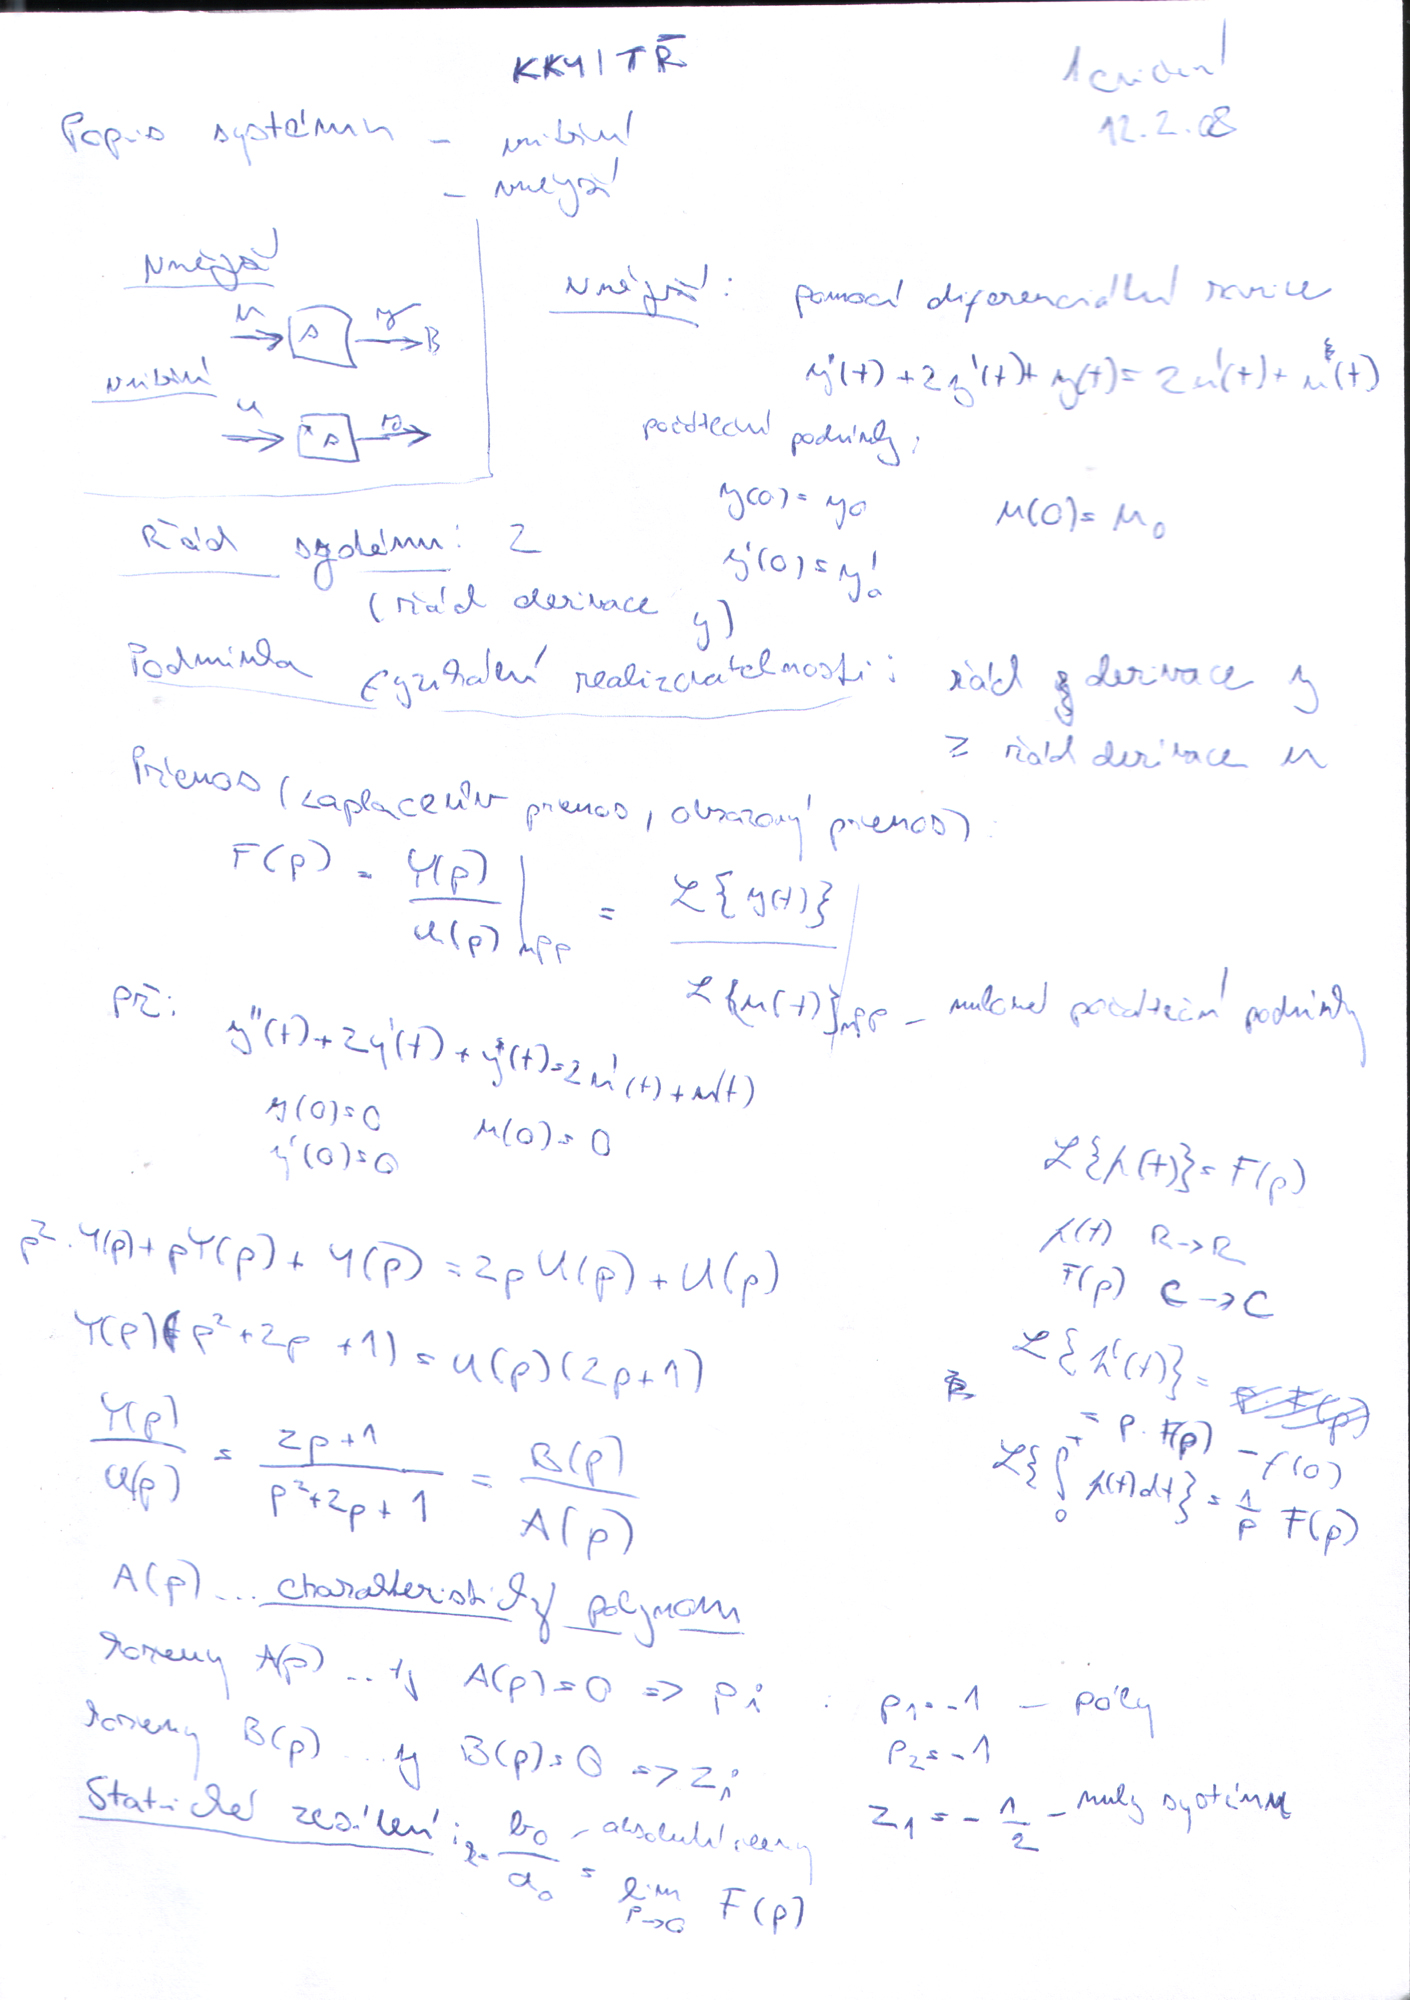 KKY/TŘ
1 cvičení
12.2.08
Popis systému - vnitřní
- vnější
Vnější
u S y
vnitřní
u x S y
Vnější: pomocí diferenciální rovnice
y''(t) + 2y'(t) + y(t) = 2u'(t) + u(t)
počáteční podmínky:
y(0) = y0 u(0) = u0
y'(0) = y'0
Řád systému: 2
(řád derivace y)
Podmínka fyzikální realizovatelnosti: řád derivace y
≥ řád derivace u
Přenos (Laplaceův přenos, obrazový přenos):
F(p) = Y(p)/U(p) | npp = L{y(t)} / L{u(t)} | npp - nulové počáteční podmínky
Př: y''(t) + 2y'(t) + y(t) = 2u'(t) + u(t)
y(0) = 0 u(0) = 0
y'(0) = 0
p² · Y(p) + pY(p) + Y(p) = 2pU(p) + U(p)
Y(p)(p² + 2p + 1) = U(p)(2p + 1)
Y(p)/U(p) = (2p + 1)/(p² + 2p + 1) = B(p)/A(p)
L{f(t)} = F(p)
f(t) R → R
F(p) C → C
L{f'(t)} =
= p · F(p) - f(0)
L{∫₀ᵀ f(t)dt} = 1/p F(p)
A(p) ... charakteristický polynom
kořeny A(p) ... tj A(p) = 0 => pi : p1 = -1 - póly
p2 = -1
kořeny B(p) ... tj B(p) = 0 => zi
z1 = - 1/2 - nuly systému
Statické zesílení: b0/a0 - absolutní členy
= lim p→0 F(p)